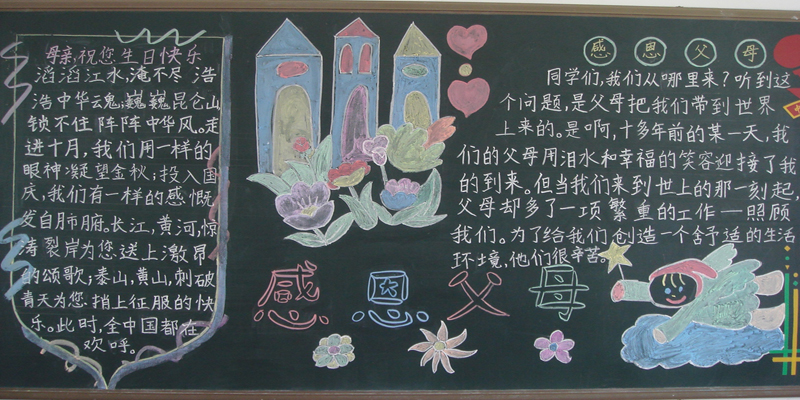 母亲,祝您生日快乐
滔滔江水,淹不尽 浩
浩中华云魂;巍巍昆仑山
锁不住阵阵中华风。走
进十月,我们用一样的
眼神凝望金秋;投入国
庆,我们有一样的感慨
发自肺腑。长江,黄河,惊
涛裂岸为您送上激昂
的颂歌;泰山,黄山,刺破
青天为您捎上征服的快
乐。此时,全中国都在
欢呼。
感恩父母
同学们,我们从哪里来?听到这
个问题,是父母把我们带到世界
上来的。是啊,十多年前的某一天,我
们的父母用泪水和幸福的笑容迎接了我
的到来。但当我们来到世上的那一刻起,
父母却多了一项繁重的工作一照顾
我们。为了给我们创造一个舒适的生活
环境,他们很辛苦。
感恩父母